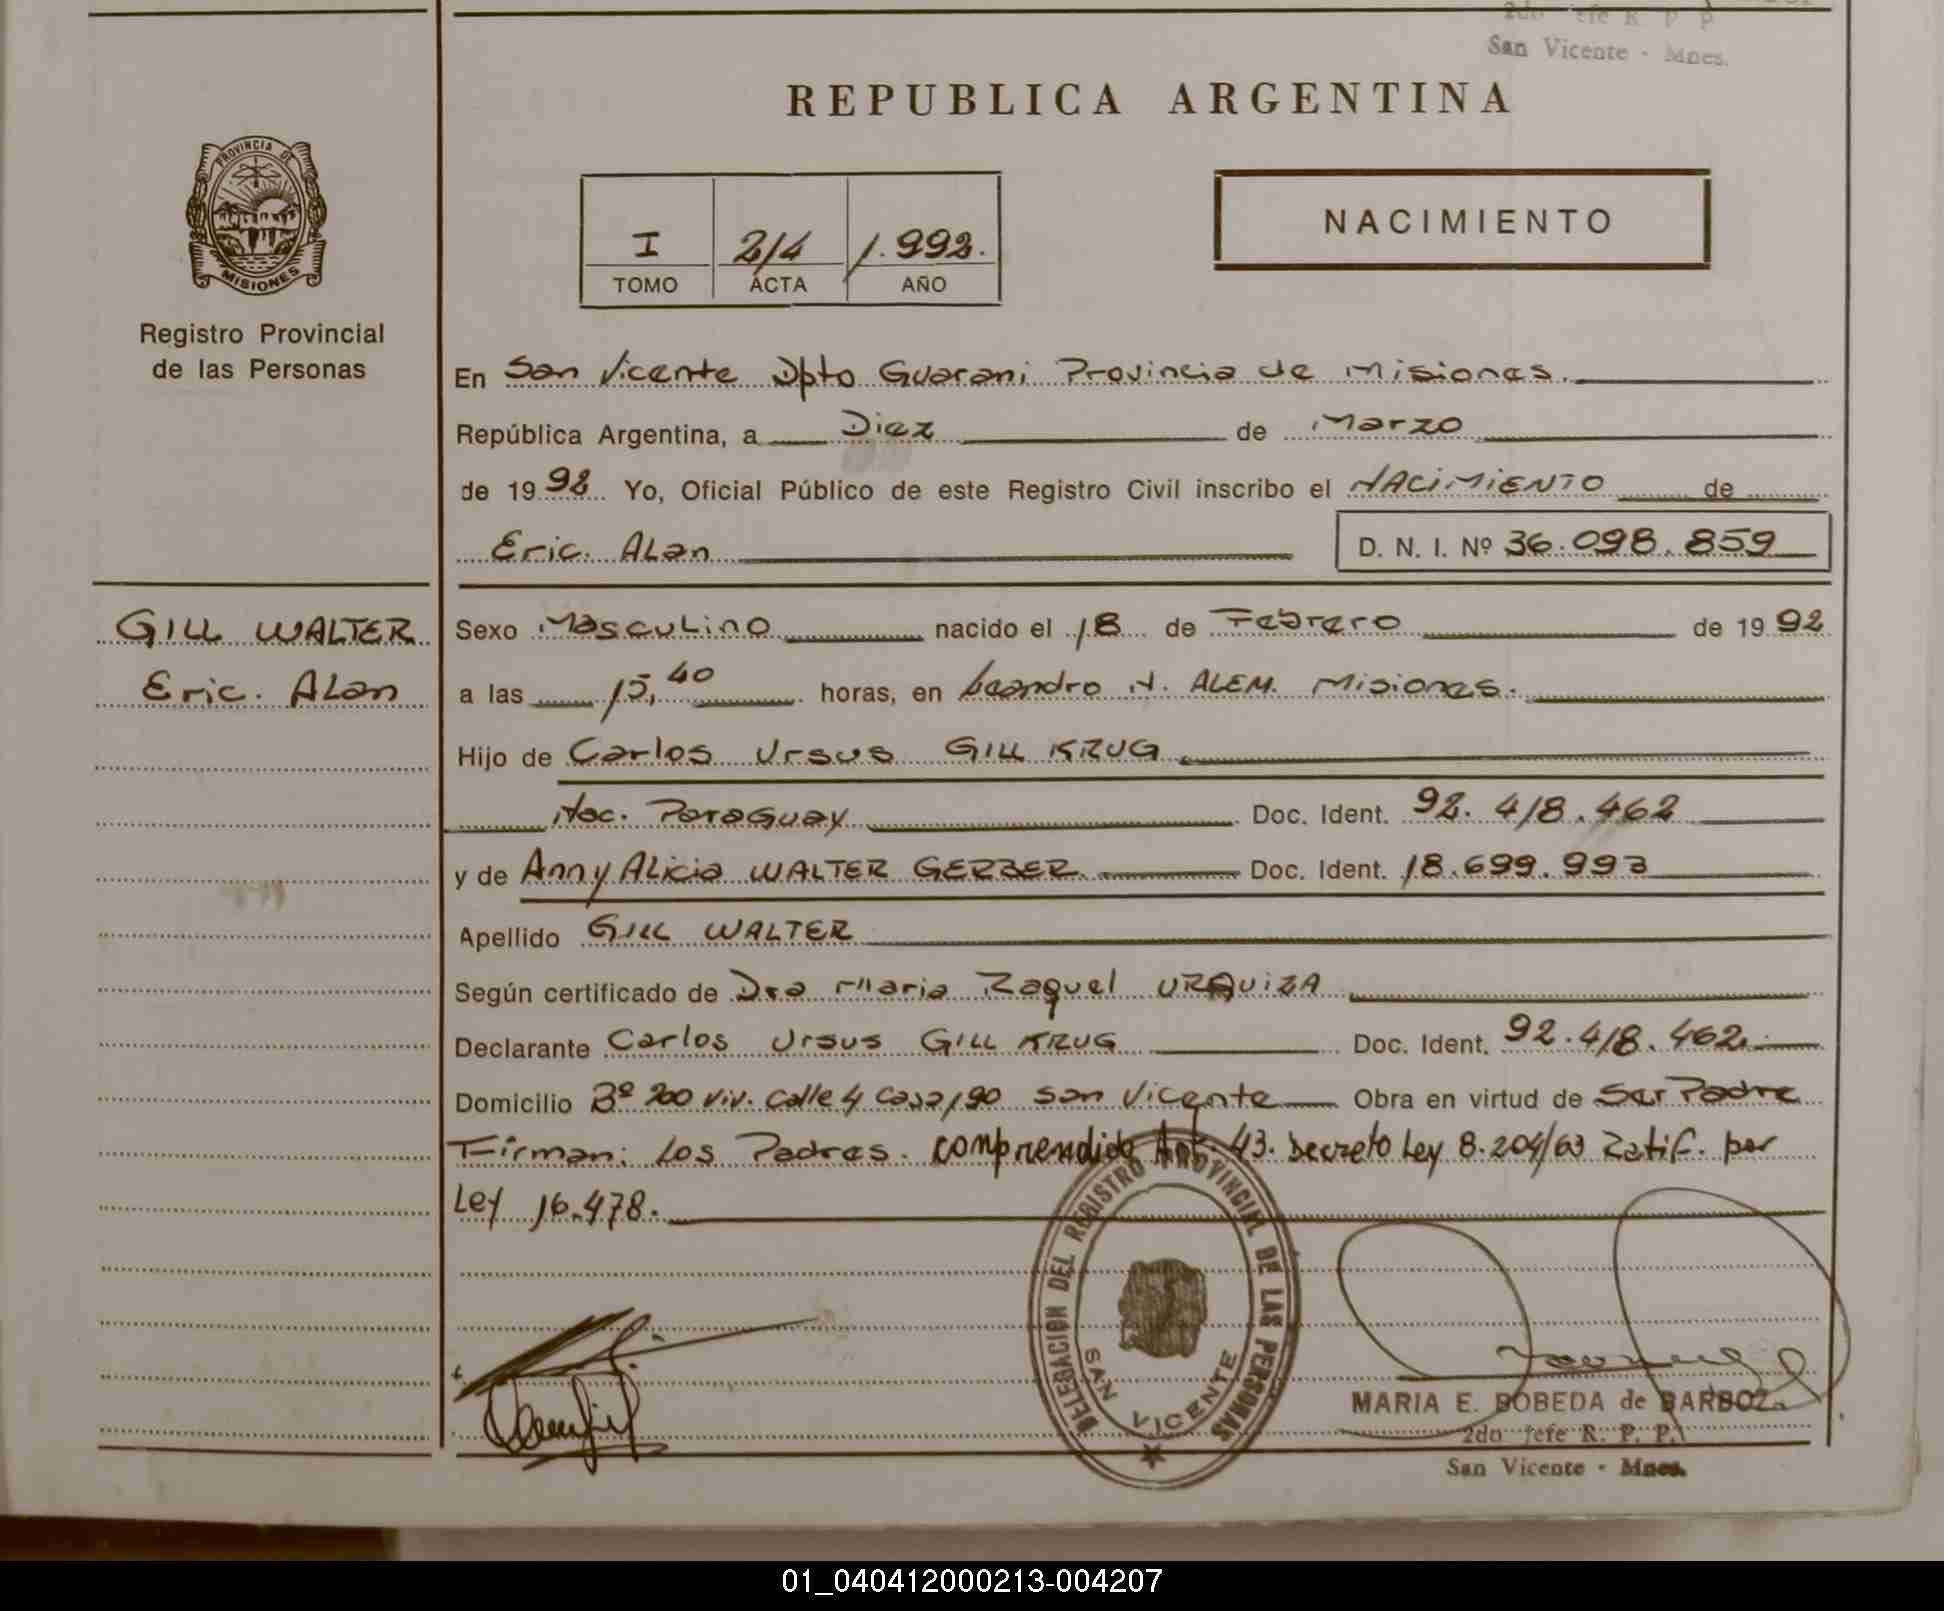 2do Jefe R. P. P.
San Vicente - Mnes.
REPUBLICA ARGENTINA
PROVINCIA DE
MISIONES
Registro Provincial
de las Personas
I 214 1.992.
TOMO ACTA AÑO
NACIMIENTO
En San Vicente Dpto Guarani Provincia de Misiones.
República Argentina, a Diez de Marzo
de 1992 Yo, Oficial Público de este Registro Civil inscribo el NACIMIENTO de
Eric. ALan D. N. I. Nº 36.098.859
GILL WALTER
Eric. ALan
Sexo MascuLino nacido el 18 de Febrero de 1992
a las 15,40 horas, en Leandro N. ALEM. Misiones.
Hijo de Carlos Ursus GILL KRUG
Nac. Paraguay Doc. Ident. 92.418.462
y de Anny ALicia WALTER GERBER Doc. Ident. 18.699.993
Apellido GILL WALTER
Según certificado de Dra Maria Raquel URQUIZA
Declarante Carlos Ursus GILL KRUG Doc. Ident. 92.418.462
Domicilio Bº 200 viv. Calle 4 Casa 190 San Vicente Obra en virtud de Ser Padre
Firman: Los Padres. comprendido Art. 43. Decreto Ley 8.204/63 Ratif. por
Ley 16.478.
DELEGACION DEL REGISTRO PROVINCIAL DE LAS PERSONAS
SAN VICENTE
MARIA E. BOBEDA de BARBOZA
2do Jefe R. P. P.
San Vicente - Mnes.
01_040412000213-004207